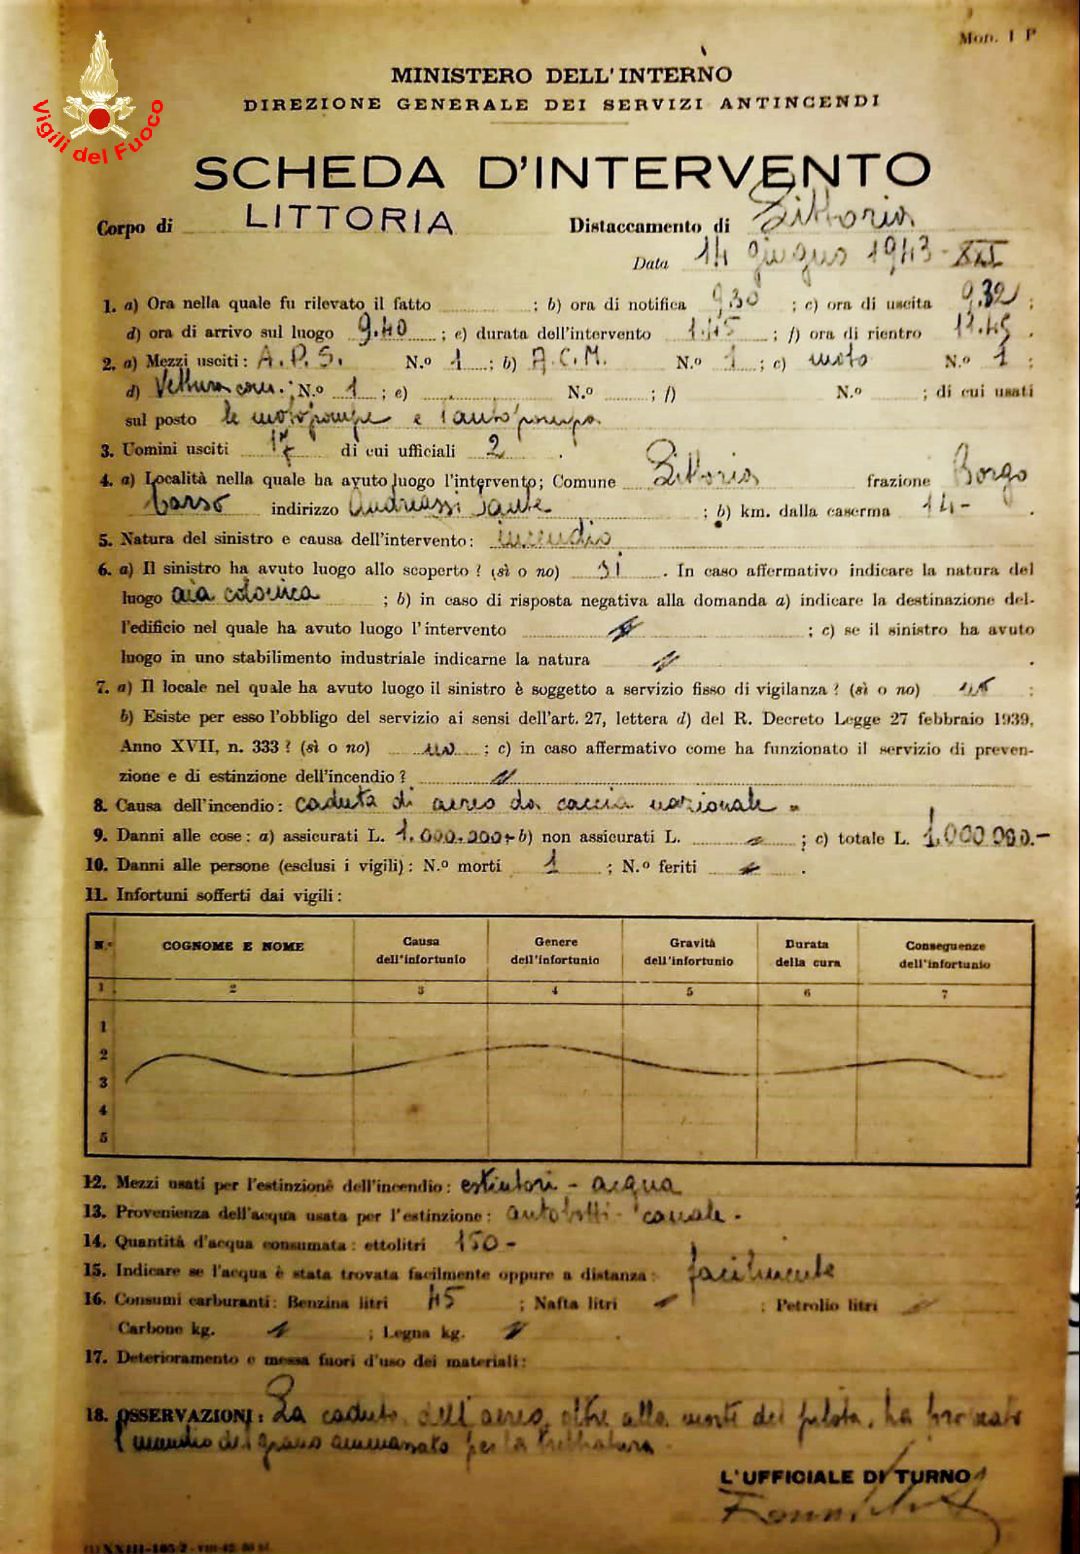 Mod. 1 P
Vigili del Fuoco
MINISTERO DELL'INTERNO
DIREZIONE GENERALE DEI SERVIZI ANTINCENDI
SCHEDA D'INTERVENTO
Corpo di LITTORIA Distaccamento di Littoria
Data 14 giugno 1943-XXI
1. a) Ora nella quale fu rilevato il fatto ; b) ora di notifica 9,30 ; c) ora di uscita 9,32 ;
d) ora di arrivo sul luogo 9.40 ; e) durata dell'intervento 1.45 ; f) ora di rientro 11.45 .
2. a) Mezzi usciti : A.P.S. N.º 1 ; b) A.C.M. N.º 1 ; c) moto N.º 1 ;
d) Vettura com. ; N.º 1 ; e) N.º ; f) N.º ; di cui usati
sul posto le motopompe e l'autopompa
3. Uomini usciti 17 di cui ufficiali 2 .
4. a) Località nella quale ha avuto luogo l'intervento; Comune Littoria frazione Borgo
Carso indirizzo Andreassi Sante ; b) km. dalla caserma 14- .
5. Natura del sinistro e causa dell'intervento : incendio
6. a) Il sinistro ha avuto luogo allo scoperto ? (sì o no) si . In caso affermativo indicare la natura del
luogo aia colonica ; b) in caso di risposta negativa alla domanda a) indicare la destinazione del-
l'edificio nel quale ha avuto luogo l'intervento ; c) se il sinistro ha avuto
luogo in uno stabilimento industriale indicarne la natura .
7. a) Il locale nel quale ha avuto luogo il sinistro è soggetto a servizio fisso di vigilanza ? (sì o no) no ;
b) Esiste per esso l'obbligo del servizio ai sensi dell'art. 27, lettera d) del R. Decreto Legge 27 febbraio 1939,
Anno XVII, n. 333 ? (sì o no) no ; c) in caso affermativo come ha funzionato il servizio di preven-
zione e di estinzione dell'incendio ?
8. Causa dell'incendio : caduta di aereo da caccia nazionale
9. Danni alle cose : a) assicurati L. 1.000.000- b) non assicurati L. ; c) totale L. 1.000.000.-
10. Danni alle persone (esclusi i vigili) : N.º morti 1 ; N.º feriti .
11. Infortuni sofferti dai vigili :
N.º COGNOME E NOME Causa dell'infortunio Genere dell'infortunio Gravità dell'infortunio Durata della cura Conseguenze dell'infortunio
1 2 3 4 5 6 7
1
2
3
4
5
12. Mezzi usati per l'estinzione dell'incendio : estintori - acqua
13. Provenienza dell'acqua usata per l'estinzione : autobotti - canale -
14. Quantità d'acqua consumata : ettolitri 150 -
15. Indicare se l'acqua è stata trovata facilmente oppure a distanza : facilmente
16. Consumi carburanti : Benzina litri 45 ; Nafta litri ; Petrolio litri
Carbone kg. ; Legna kg. .
17. Deterioramento e messa fuori d'uso dei materiali :
18. OSSERVAZIONI : La caduta dell'aereo, oltre alla morte del pilota, ha provocato
l'incendio del grano ammassato per la trebbiatura.
L'UFFICIALE DI TURNO